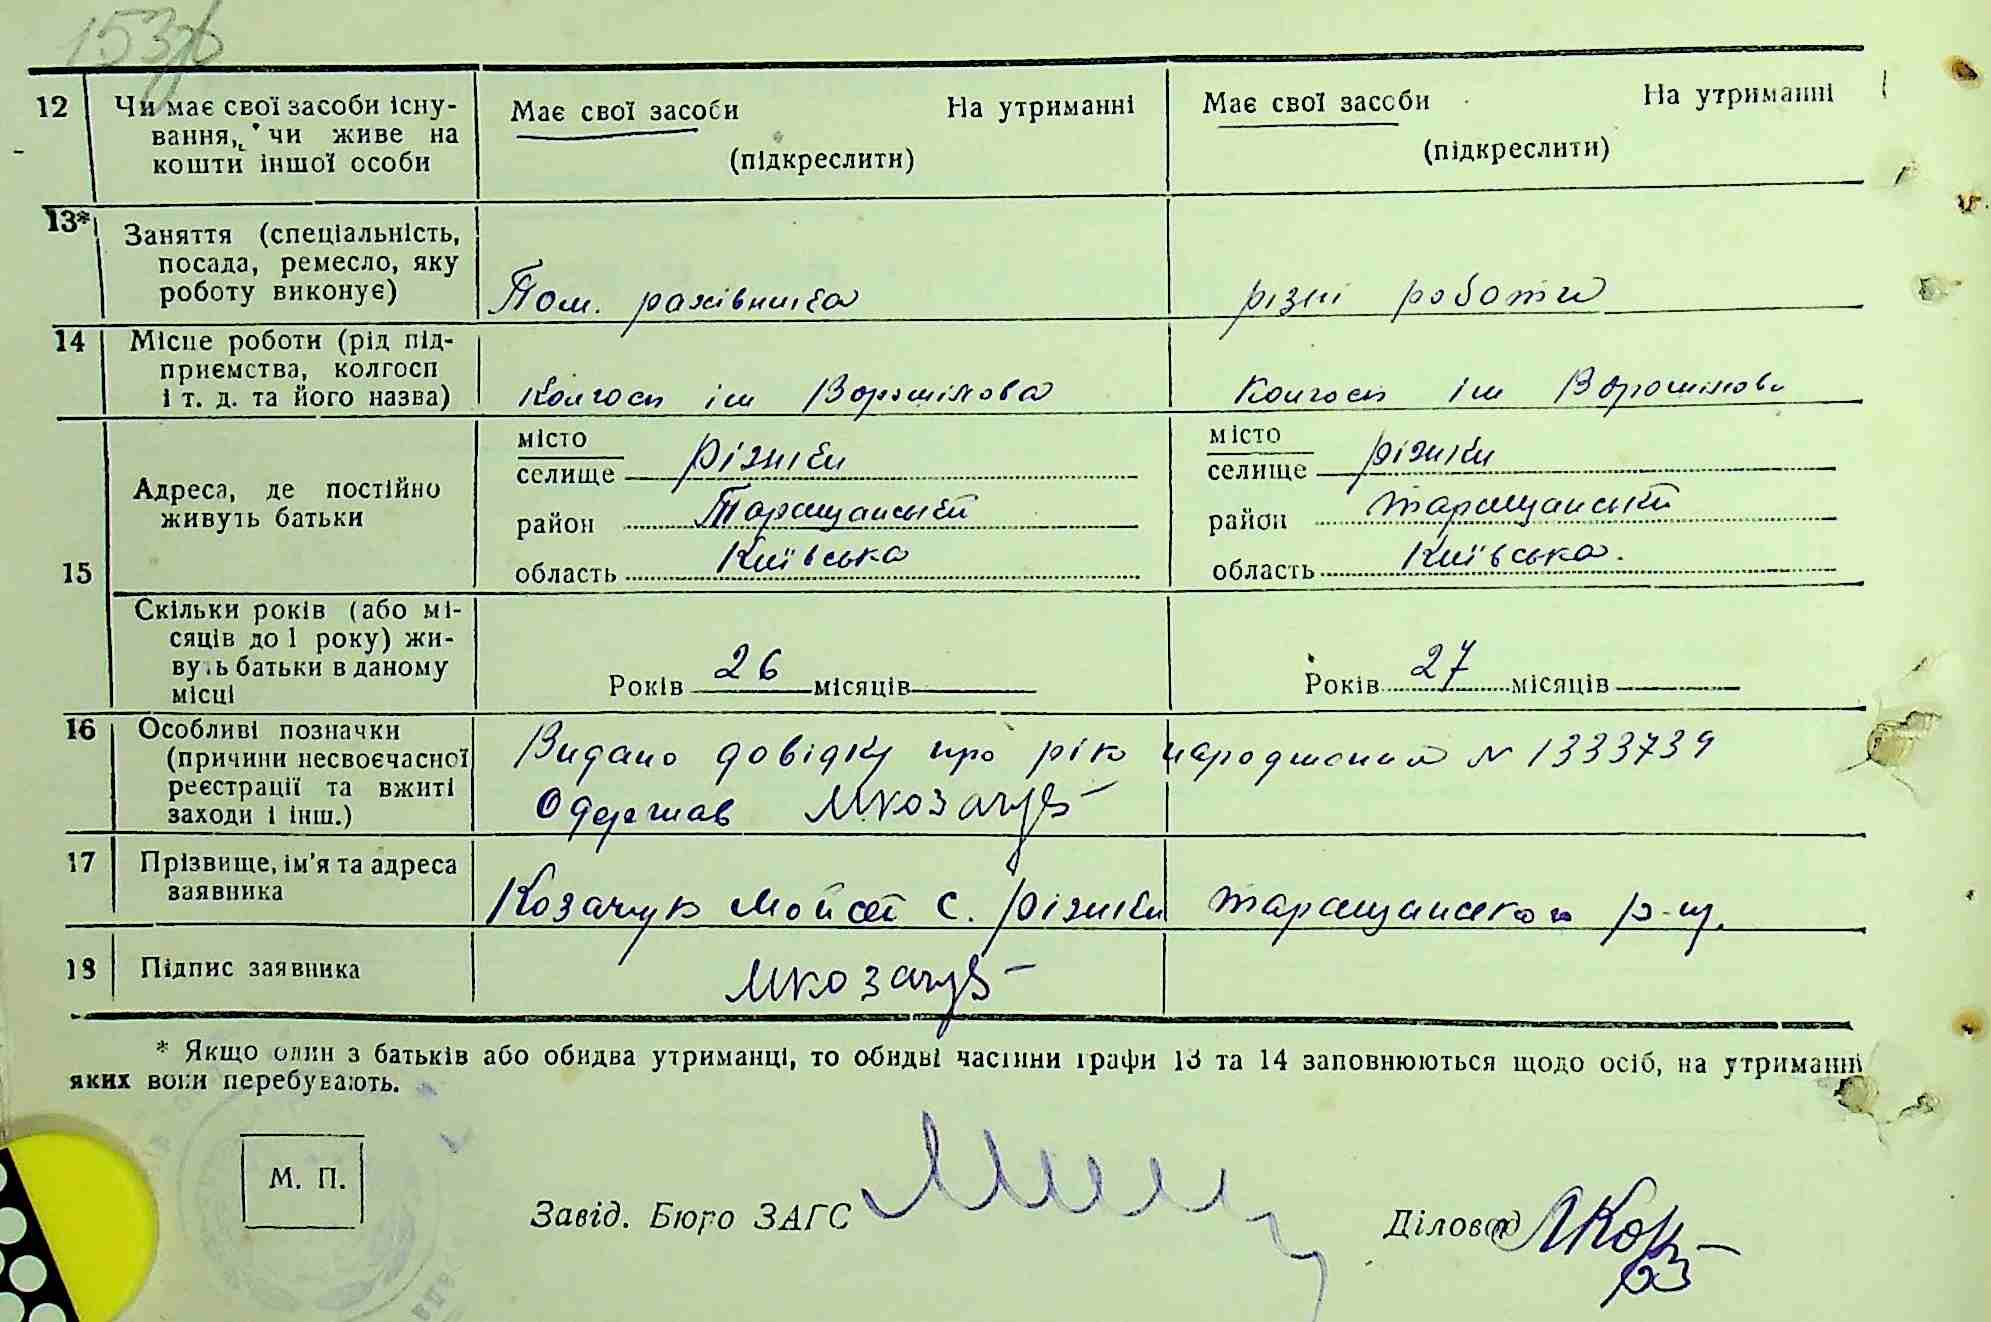 153зв
12 Чи має свої засоби існу- Має свої засоби На утриманні Має свої засоби На утриманні
вання, чи живе на
кошти іншої особи (підкреслити) (підкреслити)
13* Заняття (спеціальність,
посада, ремесло, яку
роботу виконує) Пом. рахівника різні роботи
14 Місце роботи (рід під-
приємства, колгосп
і т. д. та його назва) Колгосп ім Ворошилова Колгосп ім Ворошилова
15 Адреса, де постійно
живуть батьки
місто
селище Ріжки
район Таращанський
область Київська
місто
селище Ріжки
район Таращанський
область Київська.
Скільки років (або мі-
сяців до 1 року) жи-
вуть батьки в даному
місці Років 26 місяців Років 27 місяців
16 Особливі позначки
(причини несвоєчасної
реєстрації та вжиті
заходи і інш.)
Видано довідку про рік народження N 1333739
Одержав МКозачук
17 Прізвище, ім'я та адреса
заявника Козачук Мойсей с. Ріжки Таращанського р-ну.
18 Підпис заявника МКозачук
* Якщо один з батьків або обидва утриманці, то обидві частини графи 13 та 14 заповнюються щодо осіб, на утриманні
яких вони перебувають.
М. П.
Завід. Бюро ЗАГС Діловод